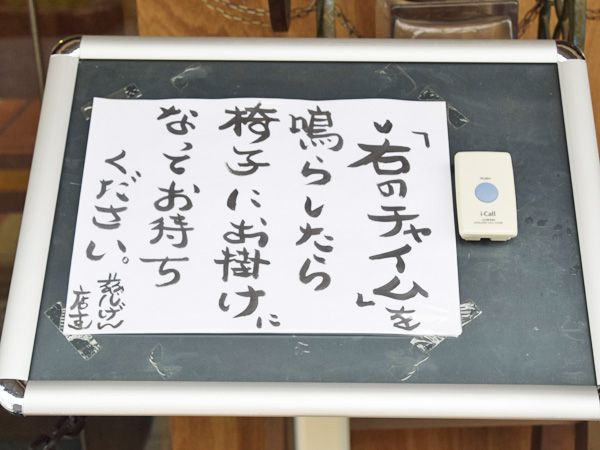 「右のチャイム」を
鳴らしたら
椅子にお掛けに
なってお待ち
ください。
店主
i-Call